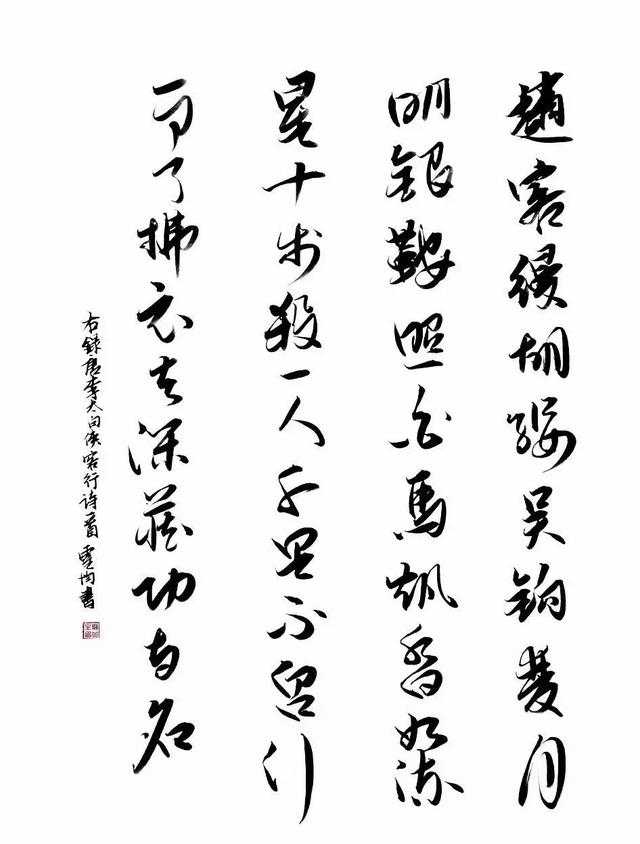 趙客縵胡纓吳鉤月
明銀鞍照白馬颯沓如流
星十步殺一人千里不留行
事了拂衣去深藏功與名
右錄唐李太白俠客行詩一首書